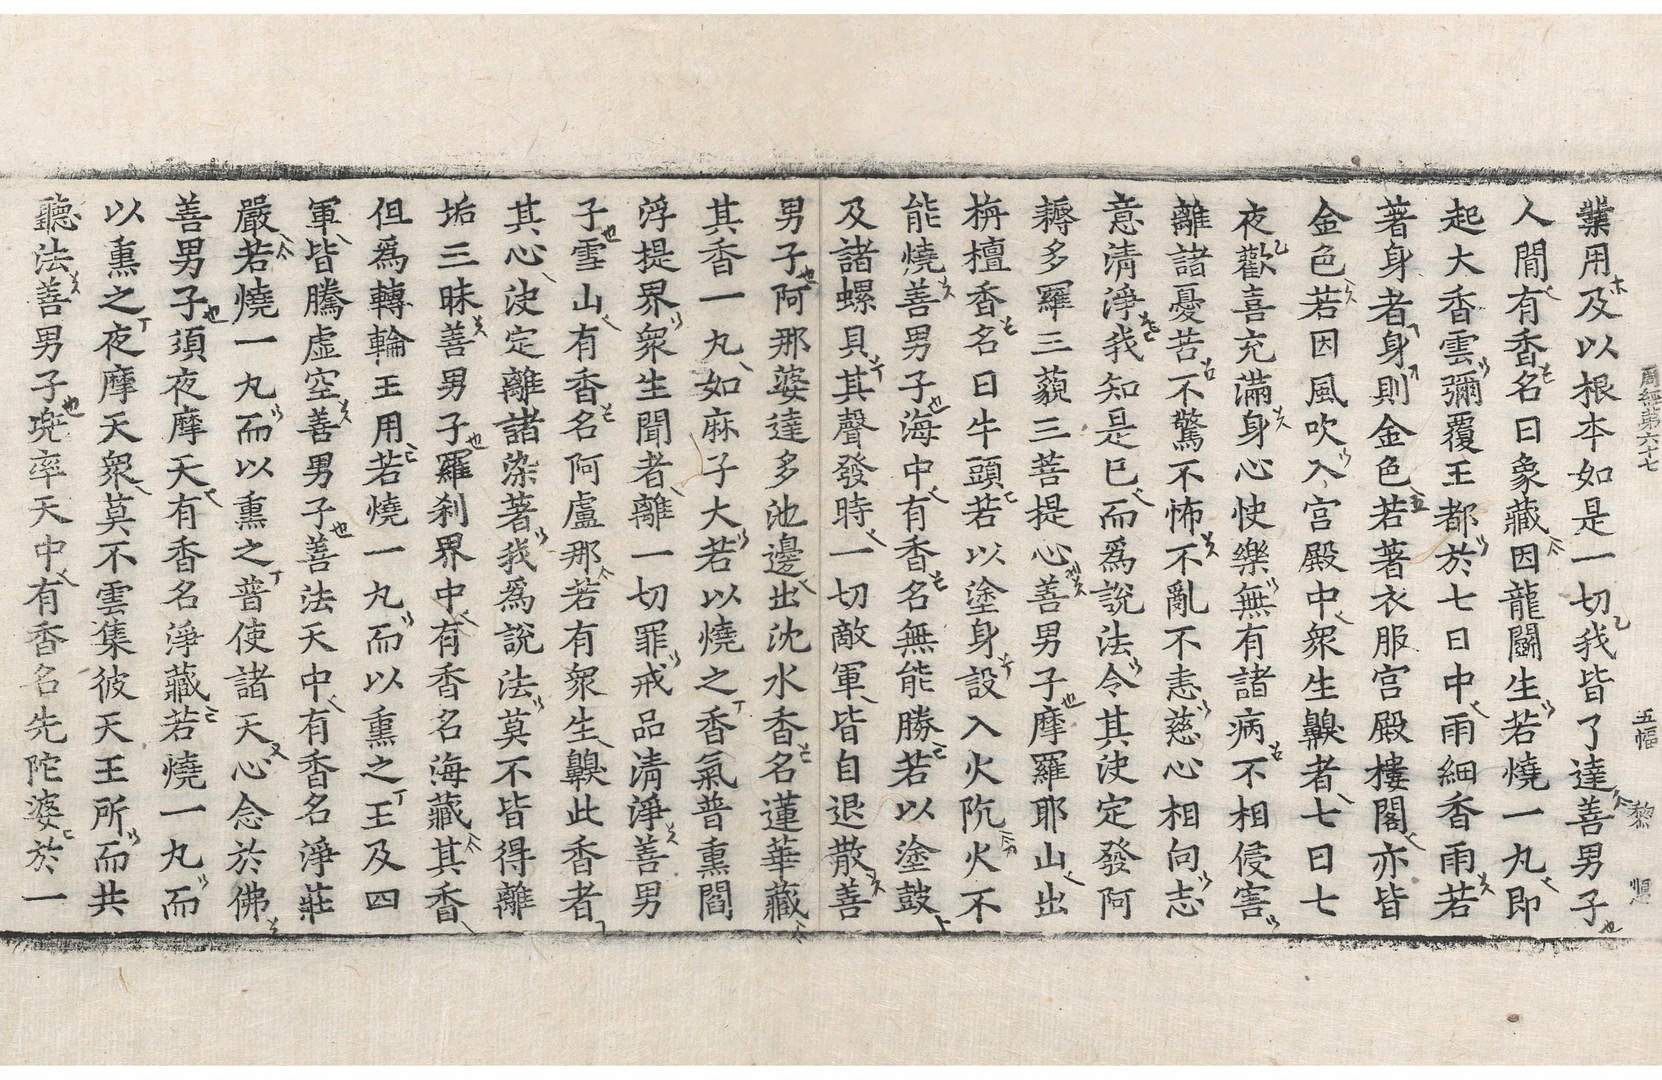 周經第六十七　五幅　黎　順
業用及以根本如是一切我皆了達善男子
人間有香名曰象藏因龍鬪生若燒一丸即
起大香雲彌覆王都於七日中雨細香雨若
著身者身則金色若著衣服宮殿樓閣亦皆
金色若因風吹入宮殿中衆生齅者七日七
夜歡喜充滿身心快樂無有諸病不相侵害
離諸憂苦不驚不怖不亂不恚慈心相向志
意清淨我知是已而爲說法令其決定發阿
耨多羅三藐三菩提心善男子摩羅耶山出
栴檀香名曰牛頭若以塗身設入火阬火不
能燒善男子海中有香名無能勝若以塗鼓
及諸螺貝其聲發時一切敵軍皆自退散善
男子阿那婆達多池邊出沈水香名蓮華藏
其香一丸如麻子大若以燒之香氣普熏閻
浮提界衆生聞者離一切罪戒品清淨善男
子雪山有香名阿盧那若有衆生齅此香者
其心決定離諸染著我爲說法莫不皆得離
垢三昧善男子羅刹界中有香名海藏其香
但爲轉輪王用若燒一丸而以熏之王及四
軍皆騰虛空善男子善法天中有香名淨莊
嚴若燒一丸而以熏之普使諸天心念於佛
善男子須夜摩天有香名淨藏若燒一丸而
以熏之夜摩天衆莫不雲集彼天王所而共
聽法善男子兜率天中有香名先陀婆於一